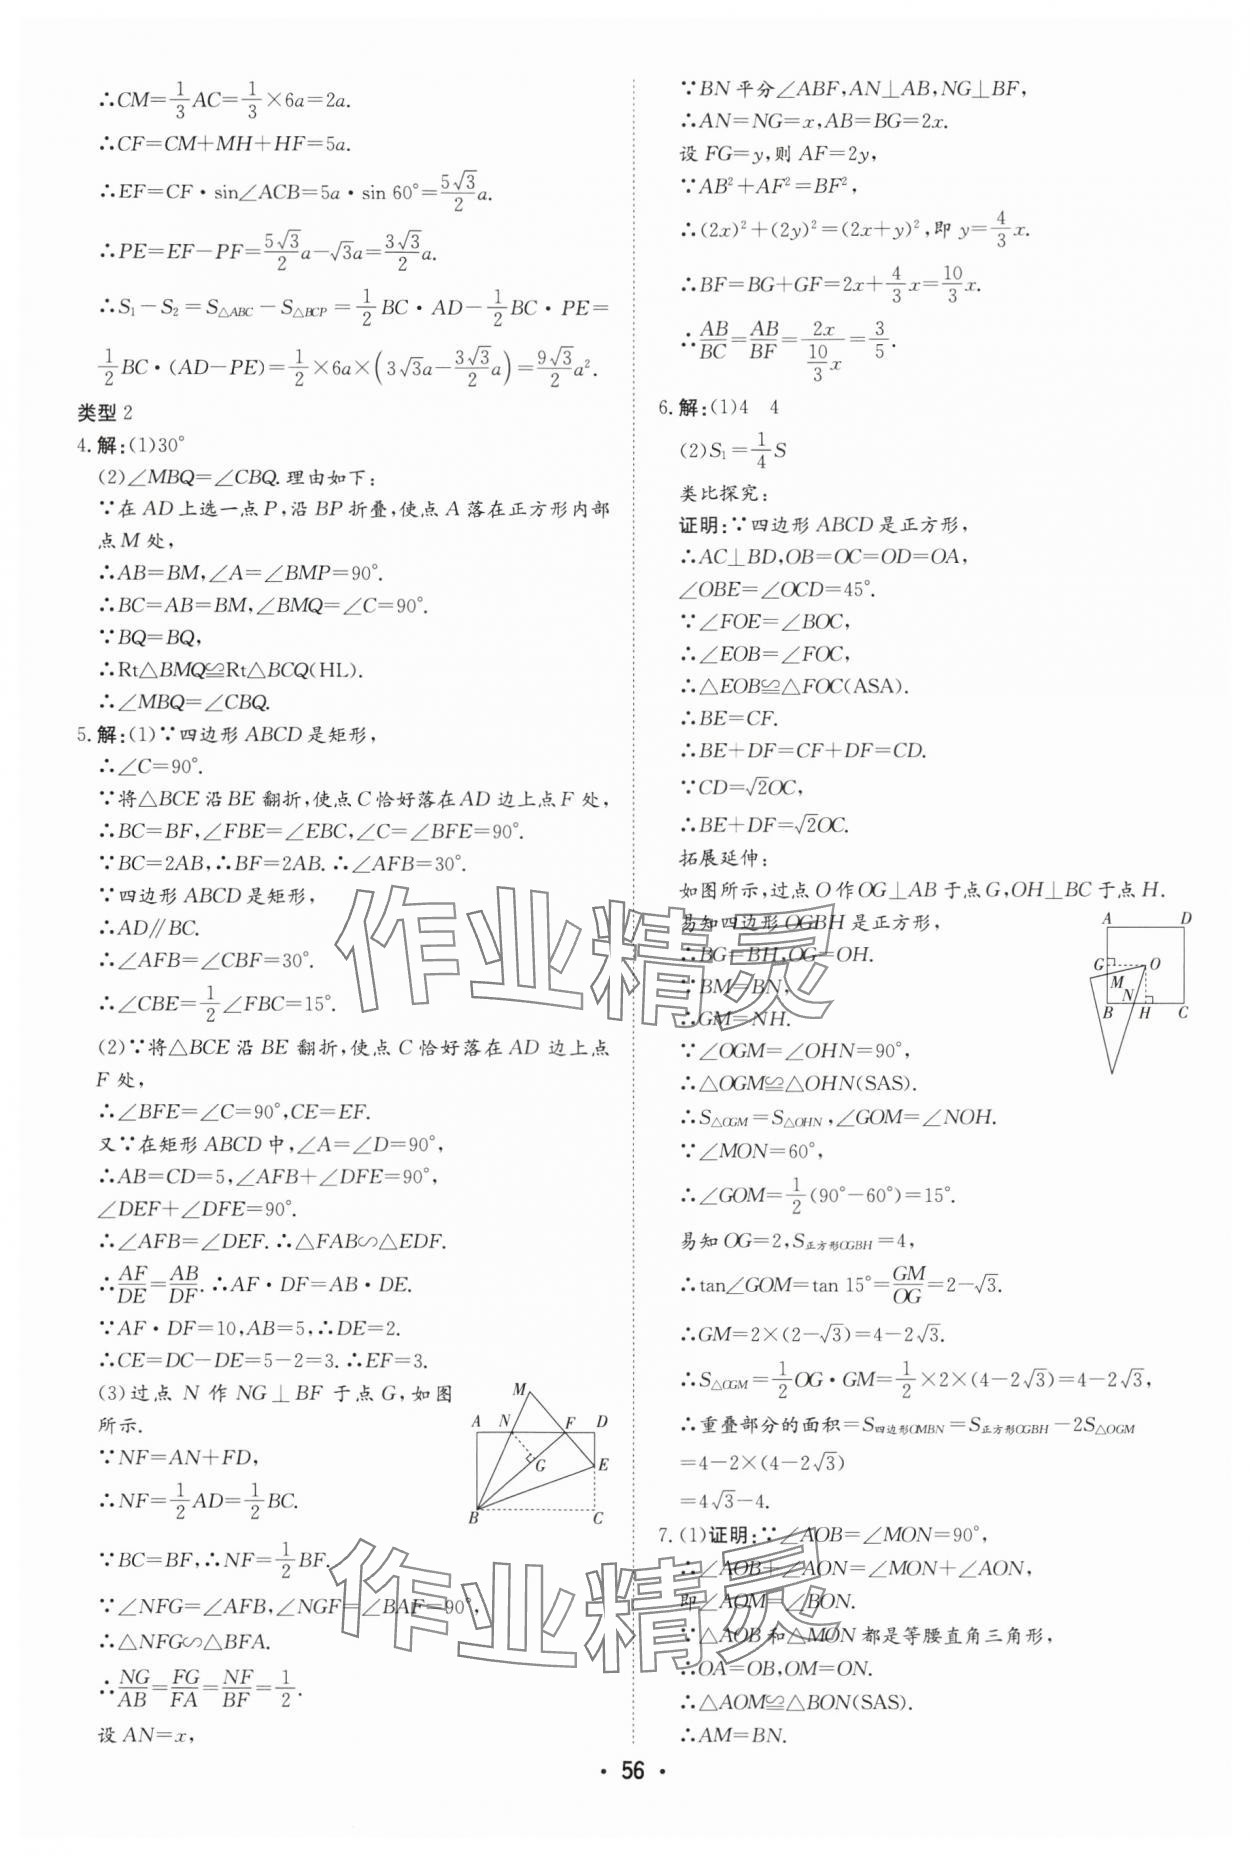 ∴CM=1/3AC=1/3×6a=2a.
∴CF=CM+MH+HF=5a.
∴EF=CF·sin∠ACB=5a·sin 60°=5√3/2 a.
∴PE=EF-PF=5√3/2 a-√3a=3√3/2 a.
∴S₁-S₂=S△ABC-S△BCP=1/2 BC·AD-1/2 BC·PE=
1/2 BC·(AD-PE)=1/2×6a×(3√3a-3√3/2 a)=9√3/2 a².
类型2
4.解:(1)30°
(2)∠MBQ=∠CBQ.理由如下:
∵在AD上选一点P,沿BP折叠,使点A落在正方形内部
点M处,
∴AB=BM,∠A=∠BMP=90°.
∴BC=AB=BM,∠BMQ=∠C=90°.
∵BQ=BQ,
∴Rt△BMQ≌Rt△BCQ(HL).
∴∠MBQ=∠CBQ.
5.解:(1)∵四边形ABCD是矩形,
∴∠C=90°.
∵将△BCE沿BE翻折,使点C恰好落在AD边上点F处,
∴BC=BF,∠FBE=∠EBC,∠C=∠BFE=90°.
∵BC=2AB,∴BF=2AB.∴∠AFB=30°.
∵四边形ABCD是矩形,
∴AD∥BC.
∴∠AFB=∠CBF=30°.
∴∠CBE=1/2∠FBC=15°.
(2)∵将△BCE沿BE翻折,使点C恰好落在AD边上点
F处,
∴∠BFE=∠C=90°,CE=EF.
又∵在矩形ABCD中,∠A=∠D=90°,
∴AB=CD=5,∠AFB+∠DFE=90°,
∠DEF+∠DFE=90°.
∴∠AFB=∠DEF.∴△FAB∽△EDF.
∴AF/DE=AB/DF.∴AF·DF=AB·DE.
∵AF·DF=10,AB=5,∴DE=2.
∴CE=DC-DE=5-2=3.∴EF=3.
(3)过点N作NG⊥BF于点G,如图
所示.
∵NF=AN+FD,
∴NF=1/2AD=1/2BC.
∵BC=BF,∴NF=1/2BF.
∵∠NFG=∠AFB,∠NGF=∠BAF=90°,
∴△NFG∽△BFA.
∴NG/AB=FG/FA=NF/BF=1/2.
设AN=x,
M
A N F D
G E
B C
∵BN平分∠ABF,AN⊥AB,NG⊥BF,
∴AN=NG=x,AB=BG=2x.
设FG=y,则AF=2y,
∵AB²+AF²=BF²,
∴(2x)²+(2y)²=(2x+y)²,即y=4/3 x.
∴BF=BG+GF=2x+4/3 x=10/3 x.
∴AB/BC=AB/BF=2x/(10/3 x)=3/5.
6.解:(1)4 4
(2)S₁=1/4 S
类比探究:
证明:∵四边形ABCD是正方形,
∴AC⊥BD,OB=OC=OD=OA,
∠OBE=∠OCD=45°.
∵∠FOE=∠BOC,
∴∠EOB=∠FOC,
∴△EOB≌△FOC(ASA).
∴BE=CF.
∴BE+DF=CF+DF=CD.
∵CD=√2OC,
∴BE+DF=√2OC.
拓展延伸:
如图所示,过点O作OG⊥AB于点G,OH⊥BC于点H.
易知四边形OGBH是正方形,
∴BG=BH,OG=OH.
∵BM=BN,
∴GM=NH.
∵∠OGM=∠OHN=90°,
∴△OGM≌△OHN(SAS).
∴S△OGM=S△OHN,∠GOM=∠NOH.
∵∠MON=60°,
∴∠GOM=1/2(90°-60°)=15°.
易知OG=2,S正方形OGBH=4,
∴tan∠GOM=tan 15°=GM/OG=2-√3.
∴GM=2×(2-√3)=4-2√3.
∴S△OGM=1/2 OG·GM=1/2×2×(4-2√3)=4-2√3,
∴重叠部分的面积=S四边形OMBN=S正方形OGBH-2S△OGM
=4-2×(4-2√3)
=4√3-4.
A D
G O
M N
B H C
7.(1)证明:∵∠AOB=∠MON=90°,
∴∠AOB+∠AON=∠MON+∠AON,
即∠AOM=∠BON.
∵△AOB和△MON都是等腰直角三角形,
∴OA=OB,OM=ON.
∴△AOM≌△BON(SAS).
∴AM=BN.
作业精灵
作业精灵
·56·